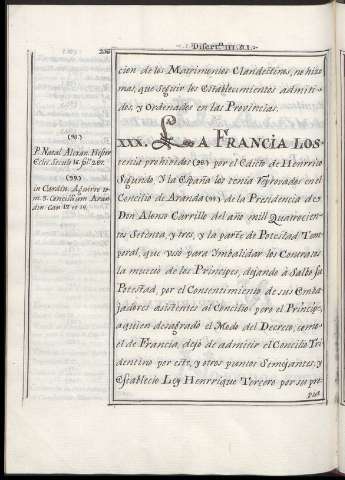 236
Disert.ⁿ III. §. I.
cion de los Matrimonios Clandestinos, no hizo
mas, que seguir los Establecimientos admiti-
dos, y Ordenados en las Provincias.
XXX. LA FRANCIA LOS
tenia prohividos (98) por el Edicto de Henrrico
Sigundo, Y la España los tenia reprovados en el
Concilio de Aranda (99) de la Presidencia de
Don Alonso Carrillo del año mill Quatrocien-
tos Setenta, y tres, y la parte de Potestad Tem-
poral, que usò para Imbalidar los Contratos
la mucciò de los Principes, dejando â Salbo su
Potestad, por el Consentimiento de sus Emba-
jadores asistentes al Concilio; pero el Principe,
aquien desagradò el Modo del Decreto, como
el de Francia, dejò de admitir el Concilio Tri-
dentino por este, y otros puntos Semejantes, y
Establecio Ley Henrrique Tercero por su pro-
pia
(98)
P. Natal Alexan. Histor
Ecles. Seculo 16. fol.
(99)
in Cardin. Aguirre to-
m. 3. Concilium Aran-
din Can 17 et 19.